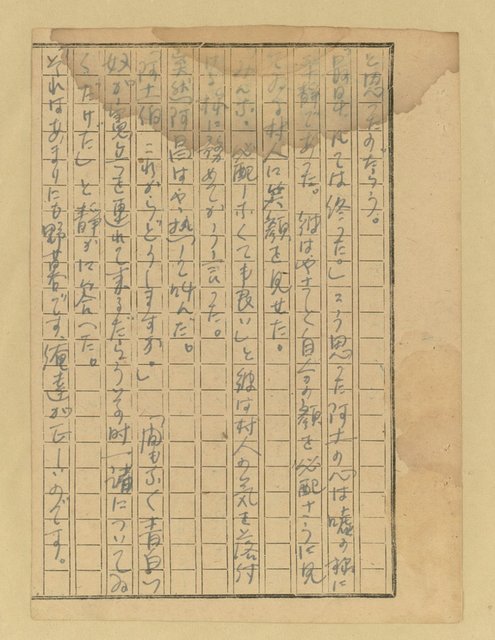 と思つたのだらう。
れでは終つた。」こう思つた阿土の心は嘘の様に
平静であつた。彼はやさしく自分の顔を心配さうに見
てゐる村人に笑顔を見せた。
みんな、心配しなくても良い」と彼は村人の気を落付
る様に努めてかう言つた。
突然阿昌はや熱つて叫んだ。
「阿土伯、これからどうしますか。」「間もなく青白い
奴が憲兵を連れて来るだらうその時一諸についてゐ
くだけだ」と静かに答へた。
それはあまりにも野暮です、俺達が正しいのです。